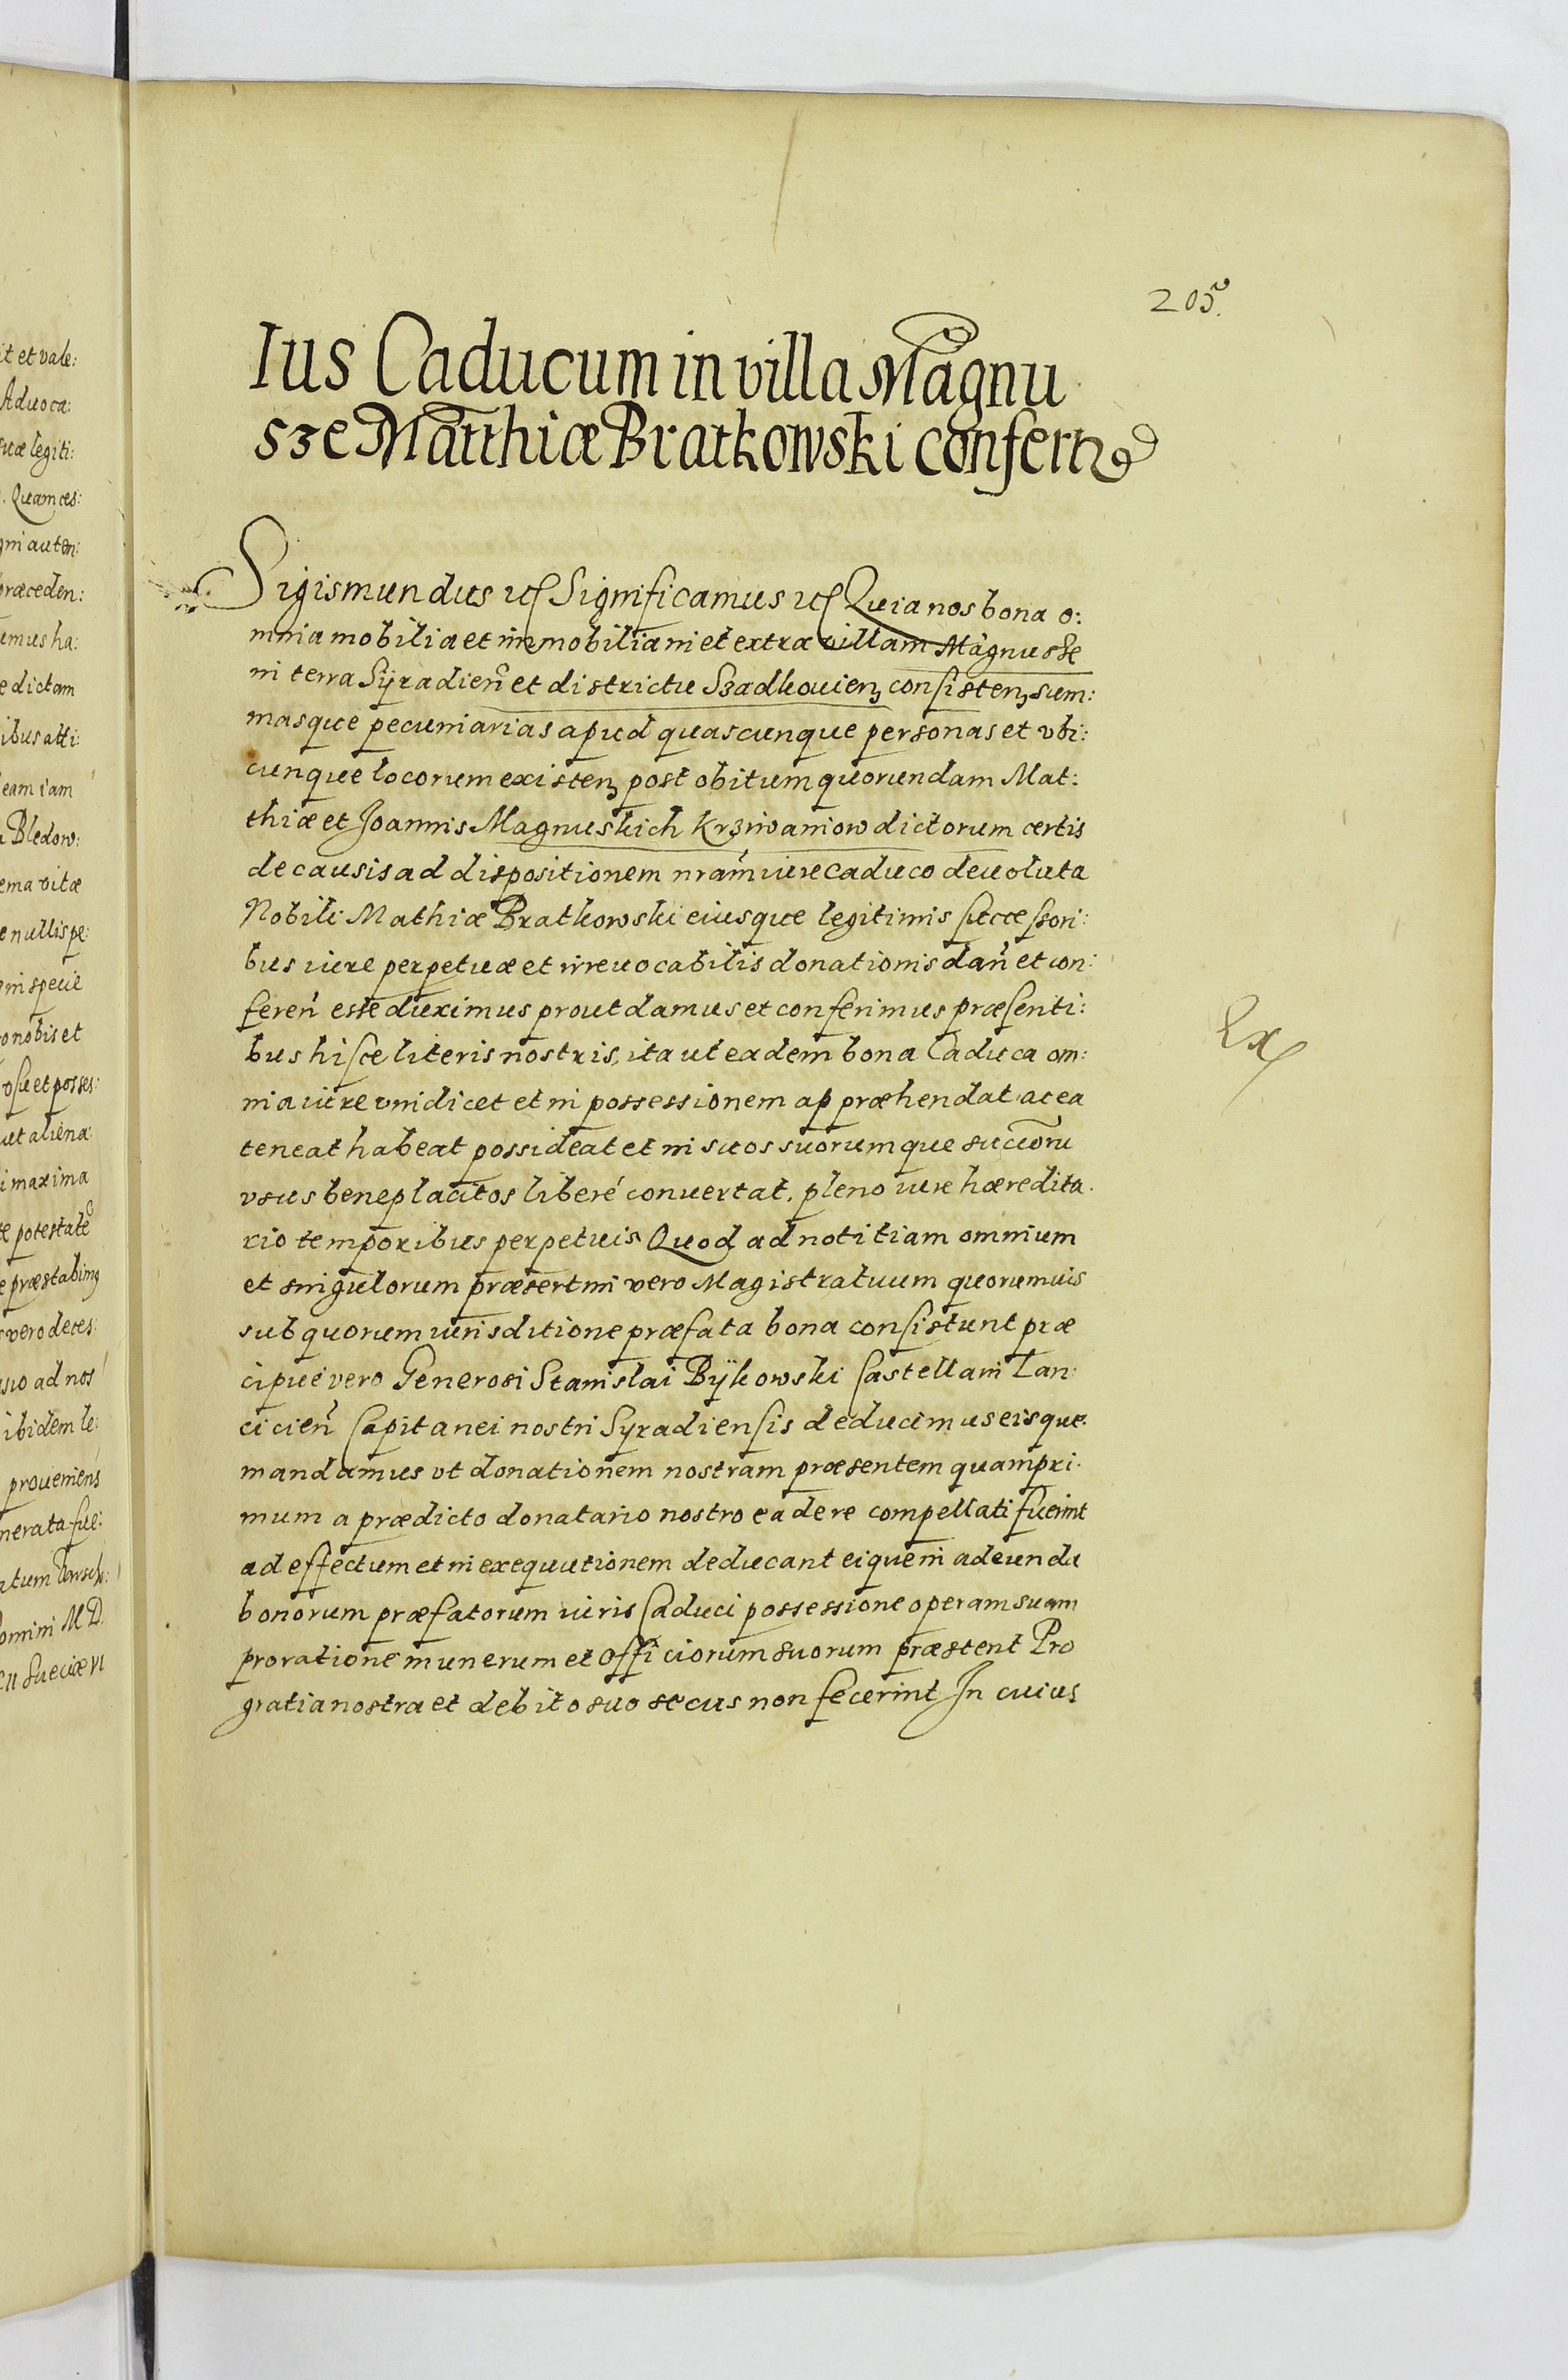 205.
Ius Caducum in villa Magnu
sze Matthiæ Bratkowski confert̃
Sigismundus etc Significamus etc Quia nos bona o:
mnia mobilia et immobilia in et extra villam Magnusse
in terra Sÿradieñ et districtu Szadkovien consisten sum:
masque pecuniarias apud quascunque personas et vbi:
cunque locorum existen post obitum quorundam Mat:
thiæ et Joannis Magnuskich Krziwaniow dictorum certis
de causis ad dispositionem nram iure caduco deuoluta
Nobili Mathiæ Bratkowski eiusque legitimis successori:
bus iure perpetuæ et irreuocabilis donationis dañ et con:
fereñ esse duximus prout damus et conferimus præsenti:
bus hisce literis nostris, ita ut eadem bona Caduca om:
nia iure vindicet et in possessionem appræhendat ac ea
teneat habeat possideat et in suos suorumque succorũ
vsus beneplacitos liberé convertat. pleno iure hæredita.
rio temporibus perpetuis Quod ad notitiam omnium
et singulorum præsertim vero Magistratuum quorumuis
sub quorum iurisditione præfata bona consistunt præ
cipué vero Generosi Stanislai Bÿkowski Castellani Lan:
cicieñ Capitanei nostri Syradiensis deducimus eisque
mandamus vt donationem nostram præsentem quampri.
mum a prædicto donatario nostro ea de re compellati fuerint
ad effectum et in exequutionem deducant eique in adeunda
bonorum præfatorum iuris Caduci possessione operam suam
pro ratione munerum et Officiorum suorum præstent Pro
gratia nostra et debito suo secus non fecerint In cuius
Ex